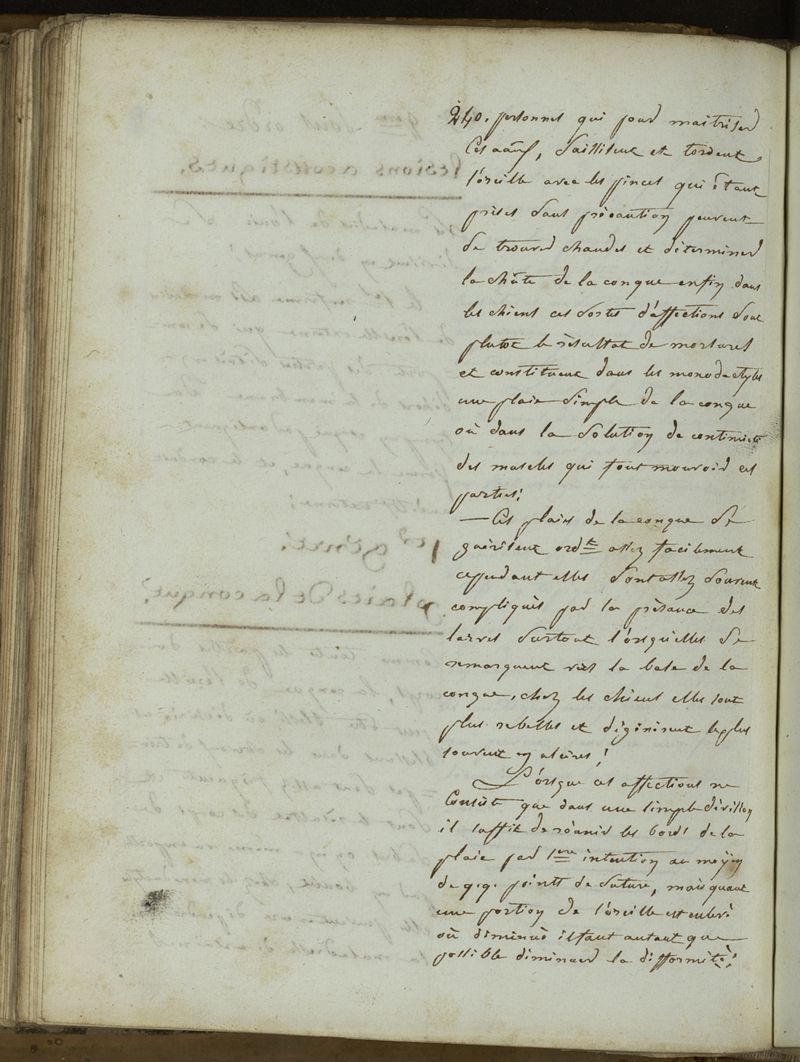 240. personnes qui pour maitriser
Ces aãux, saillisent et tordent
l'oreille avec les pinces qui êtant
prises sans précaution peuvent
se trouver chaudes et déterminer
la chûte de la conque enfin dans
les chiens ces sortes d'affections sont
plutot le rèsultat de morsures
et constituent dans les monodactyles
une plaie simple de la conque
où dans la solution de continuité
des muscles qui font mouvoir ces
parties!
— Ces plaies de la conque se
guérissent ordt assez facilement
cependant elles sont assez souvent
compliqués par la présance des
larves surtout l'orsqu'elles se
remarquent vers la base de la
conque, chez les chiens elles sont
plus rebelles et digénèrent le plus
souvent en ulcères!
L'orsque ces affections ne
Consiste que dans une simple division
il suffit de réunir les bords de la
plaie par 1ere intention au moyen
de q.q. points de suture, mais quant
une portion de l'oreille est enlevé
où diminué il faut autant que
possible diminuer la difformité!